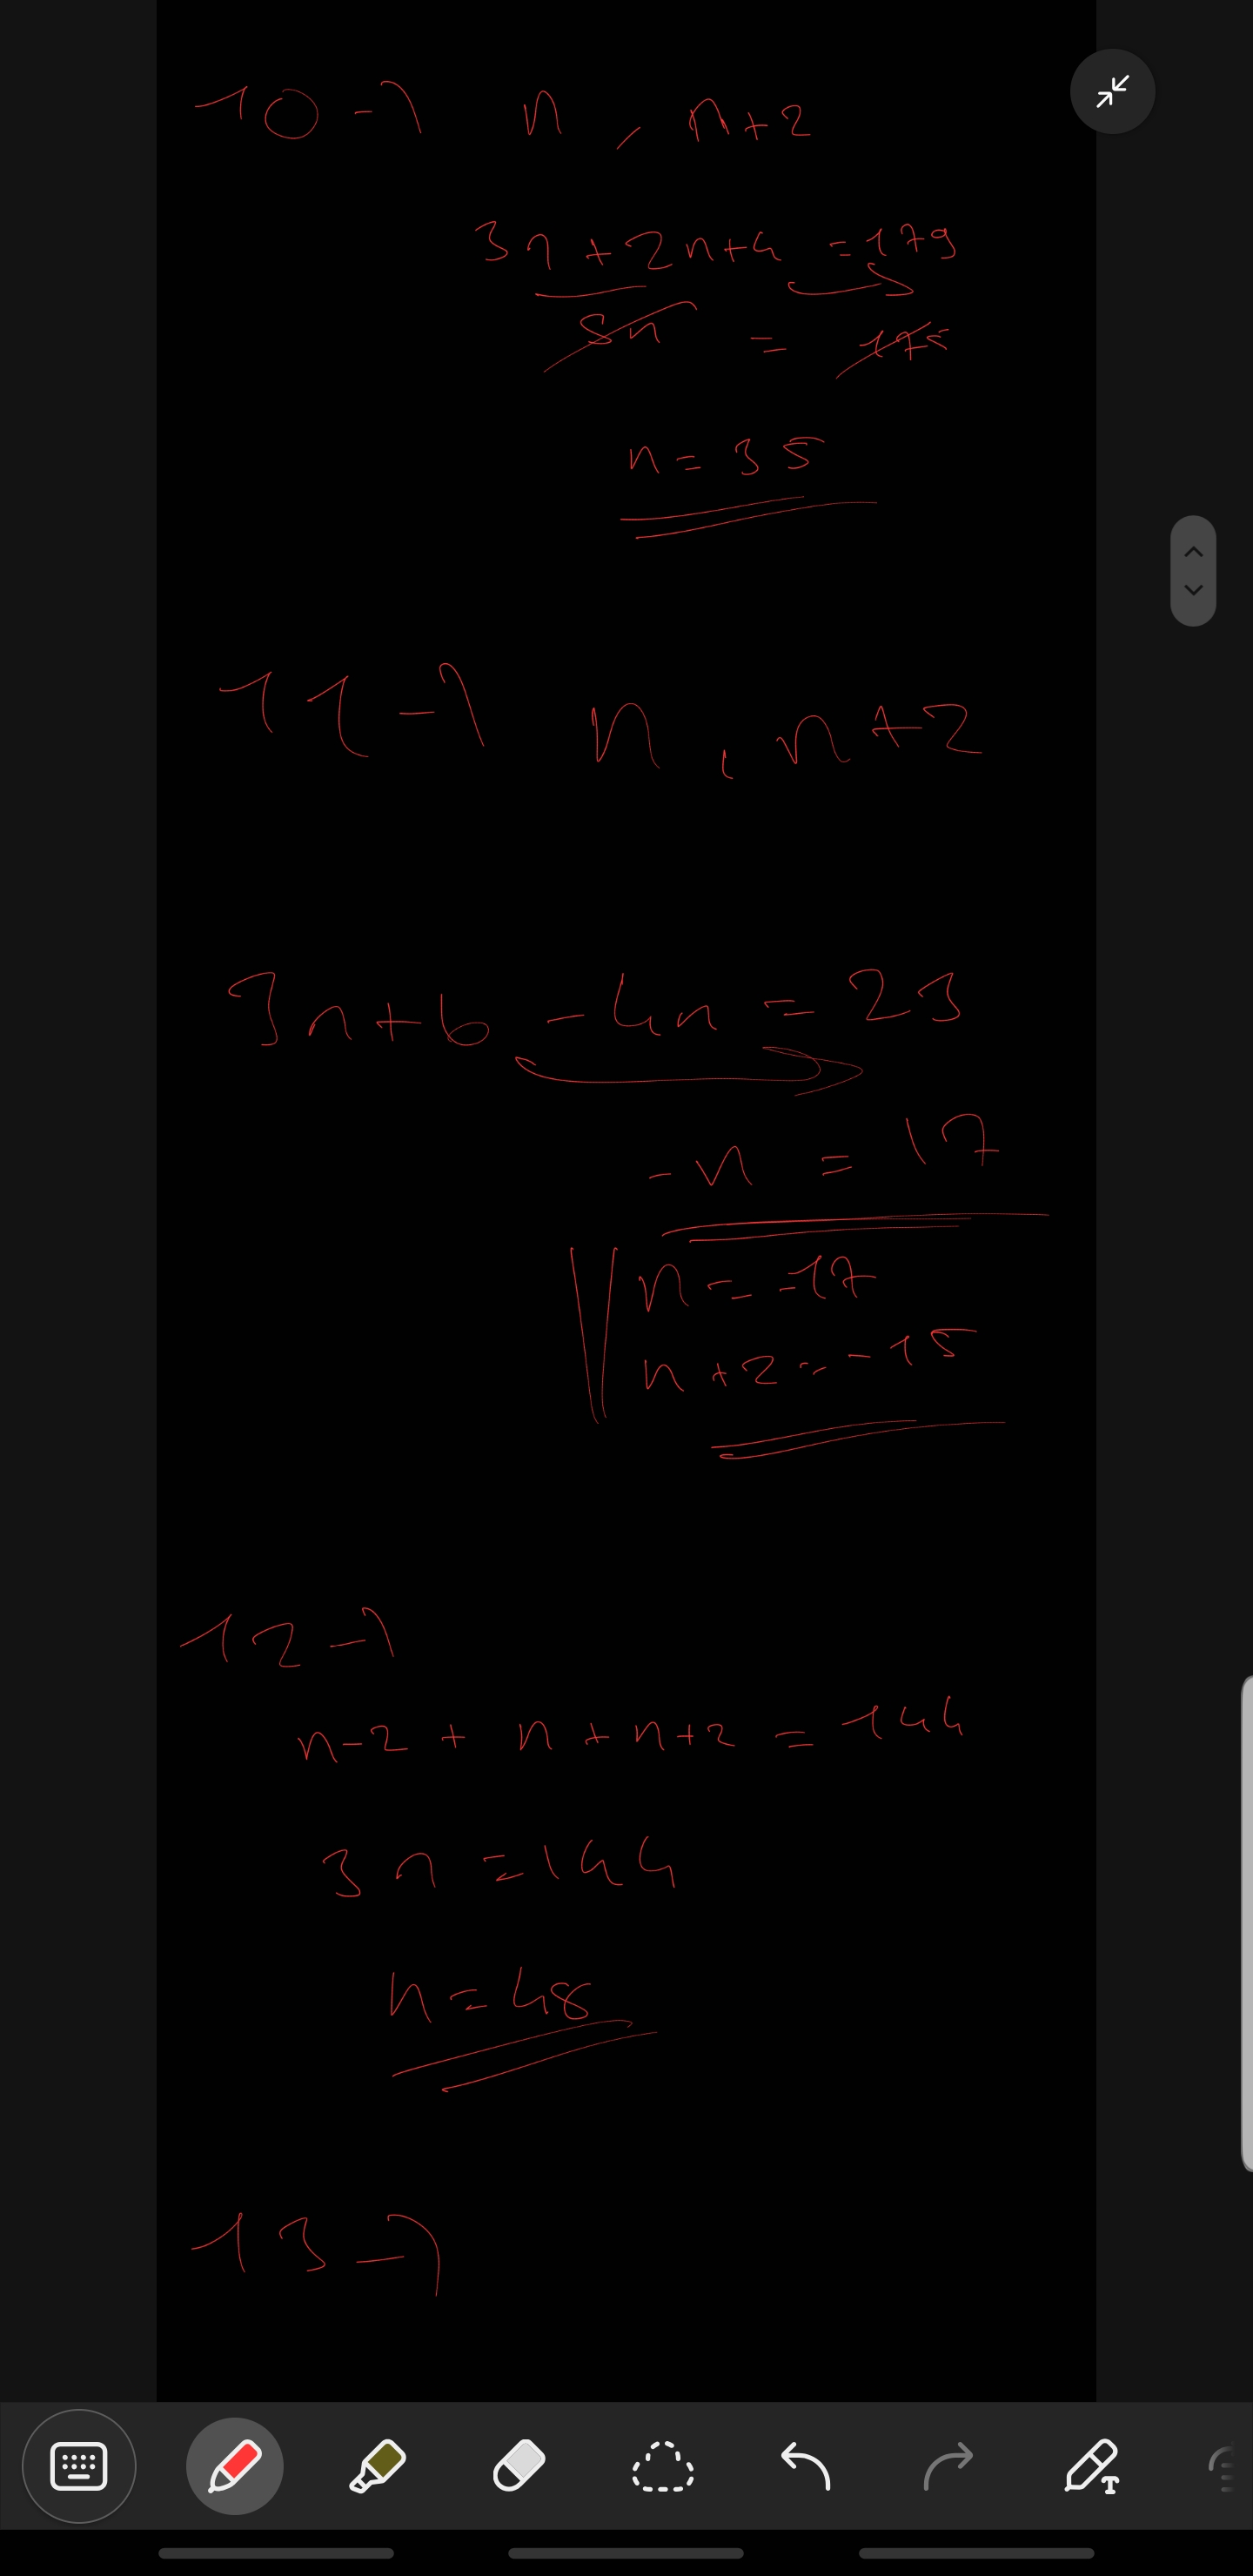 10-) n, n+2
3n+2n+4 = 179
5n = 175
n = 35
11-) n, n+2
3n+6 - 4n = 23
-n = 17
n = -17
n+2 = -15
12-)
n-2 + n + n+2 = 144
3n = 144
n = 48
13-)
T